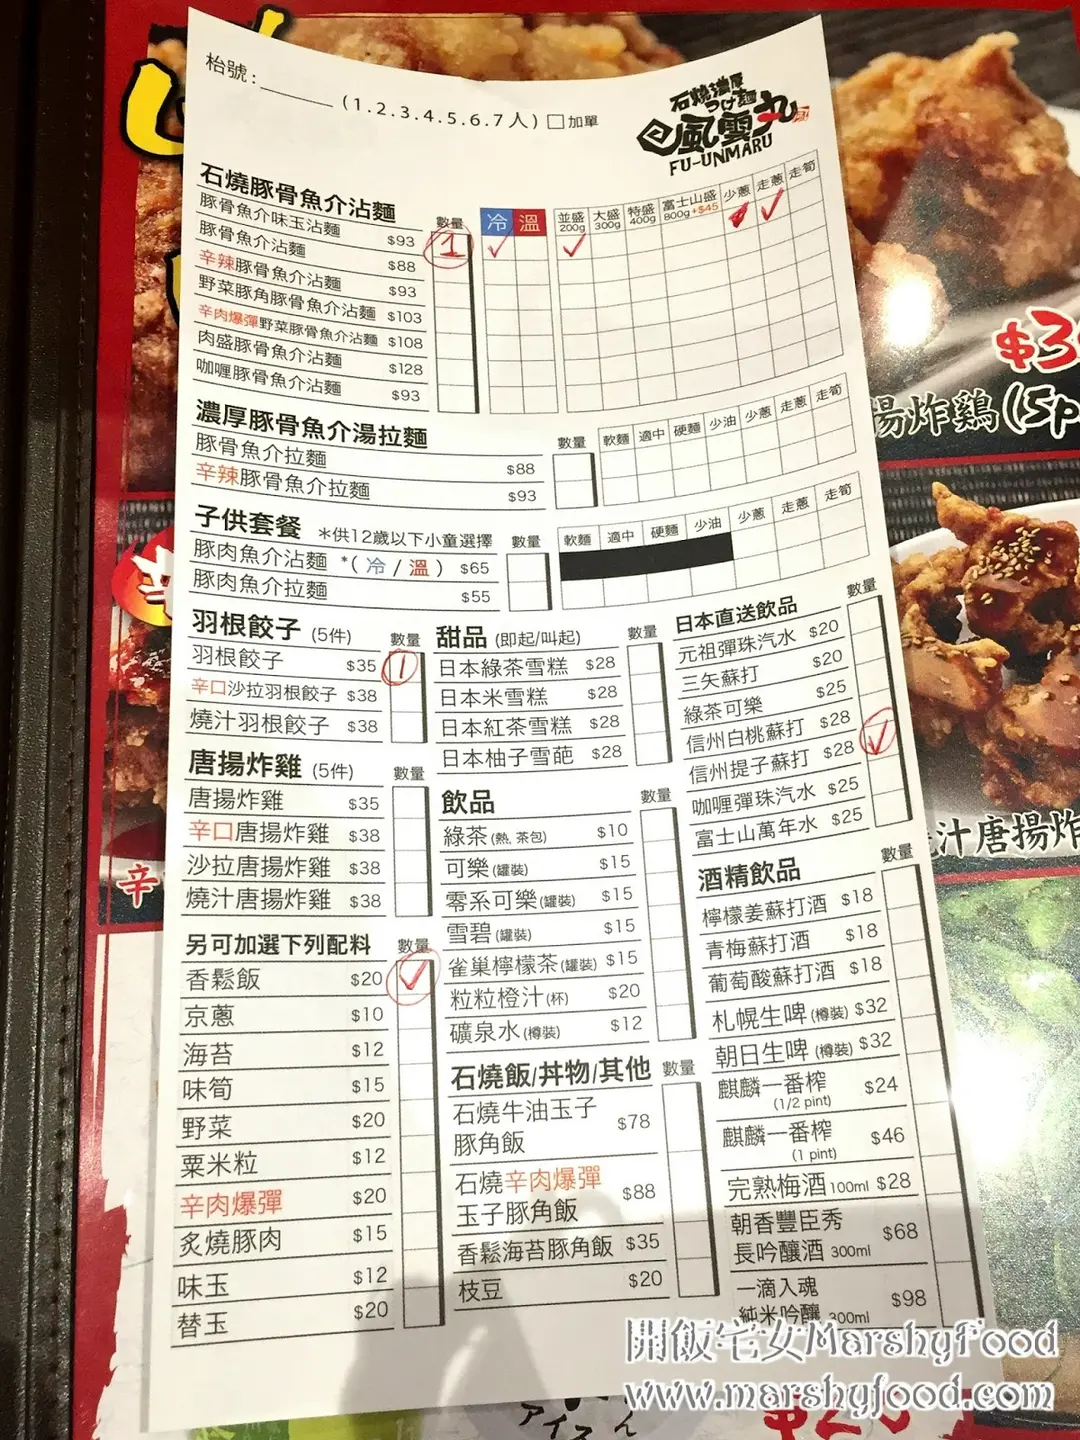 枱號：
(1.2.3.4.5.6.7人) 加單
石燒濃厚
つけ麵
風雲丸
FU-UNMARU
石燒豚骨魚介沾麵 數量 冷 溫 並盛 200g 大盛 300g 特盛 400g 富士山盛 800g +$45 少蔥 走蔥 走筍
豚骨魚介味玉沾麵 $93 1
豚骨魚介沾麵 $88
辛辣豚骨魚介沾麵 $93
野菜豚角豚骨魚介沾麵 $103
辛肉爆彈野菜豚骨魚介沾麵 $108
肉盛豚骨魚介沾麵 $128
咖喱豚骨魚介沾麵 $93
濃厚豚骨魚介湯拉麵 數量 軟麵 適中 硬麵 少油 少蔥 走蔥 走筍
豚骨魚介拉麵 $88
辛辣豚骨魚介拉麵 $93
子供套餐 *供12歲以下小童選擇 數量 軟麵 適中 硬麵 少油 少蔥 走蔥 走筍
豚肉魚介沾麵 *(冷/溫) $65
豚肉魚介拉麵 $55
羽根餃子 (5件) 數量
羽根餃子 $35 1
辛口沙拉羽根餃子 $38
燒汁羽根餃子 $38
唐揚炸雞 (5件) 數量
唐揚炸雞 $35
辛口唐揚炸雞 $38
沙拉唐揚炸雞 $38
燒汁唐揚炸雞 $38
另可加選下列配料 數量
香鬆飯 $20
京蔥 $10
海苔 $12
味筍 $15
野菜 $20
粟米粒 $12
辛肉爆彈 $20
炙燒豚肉 $15
味玉 $12
替玉 $20
甜品 (即起/叫起) 數量
日本綠茶雪糕 $28
日本米雪糕 $28
日本紅茶雪糕 $28
日本柚子雪葩 $28
飲品 數量
綠茶(熱, 茶包) $10
可樂(罐裝) $15
零系可樂(罐裝) $15
雪碧(罐裝) $15
雀巢檸檬茶(罐裝) $15
粒粒橙汁(杯) $20
礦泉水(樽裝) $12
石燒飯/丼物/其他 數量
石燒牛油玉子
豚角飯 $78
石燒辛肉爆彈
玉子豚角飯 $88
香鬆海苔豚角飯 $35
枝豆 $20
日本直送飲品 數量
元祖彈珠汽水 $20
三矢蘇打 $20
綠茶可樂 $25
信州白桃蘇打 $28
信州提子蘇打 $28
咖喱彈珠汽水 $25
富士山萬年水 $25
酒精飲品 數量
檸檬姜蘇打酒 $18
青梅蘇打酒 $18
葡萄酸蘇打酒 $18
札幌生啤(樽裝) $32
朝日生啤(樽裝) $32
麒麟一番榨 (1/2 pint) $24
麒麟一番榨 (1 pint) $46
完熟梅酒100ml $28
朝香豐臣秀
長吟釀酒 300ml $68
一滴入魂
純米吟釀 300ml $98
$3
揚炸鷄(5p
汁唐揚炸
辛
アイス
ん
開飯宅女MarshyFood
www.marshyfood.com